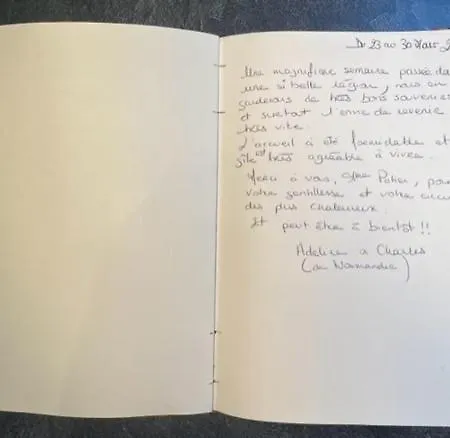 Du 23 au 30 Mars 2
Une magnifique semaine passée da
une si belle région, nous en
garderons de très bons souvenirs
et surtout l'envie de revenir
très vite.
L'accueil a été formidable et
gîte est très agréable à vivre.
Merci à vous, Mme Potier, pou
votre gentillesse et votre accu
des plus chaleureux.
Et peut être à bientôt !!
Adeline & Charles
(de Normandie)